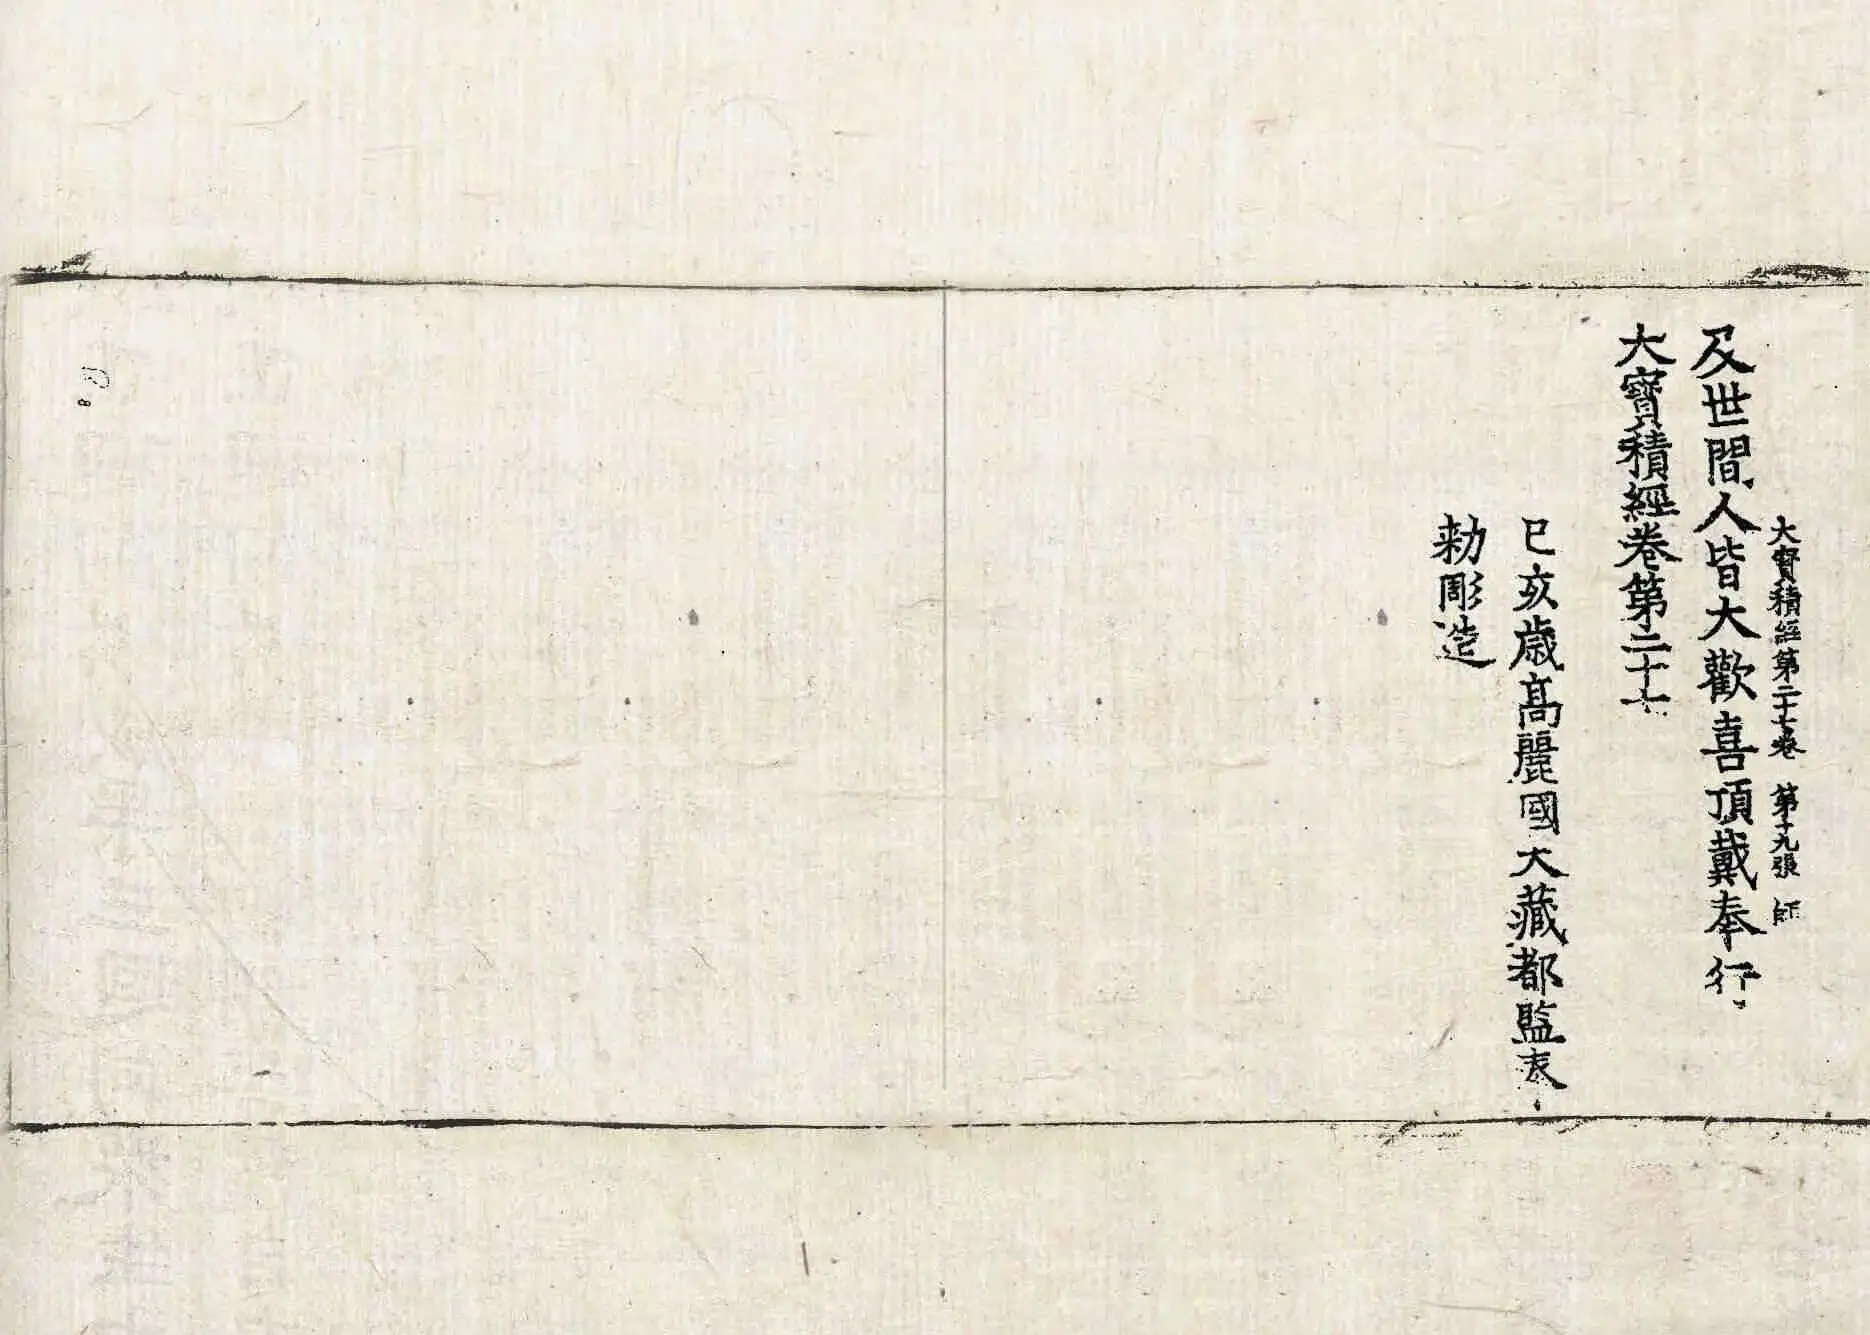 大寶積經第二十七卷 第十九張 師
及世閒人皆大歡喜頂戴奉行
大寶積經卷第二十七
已亥歲高麗國大藏都監奉
勅彫造